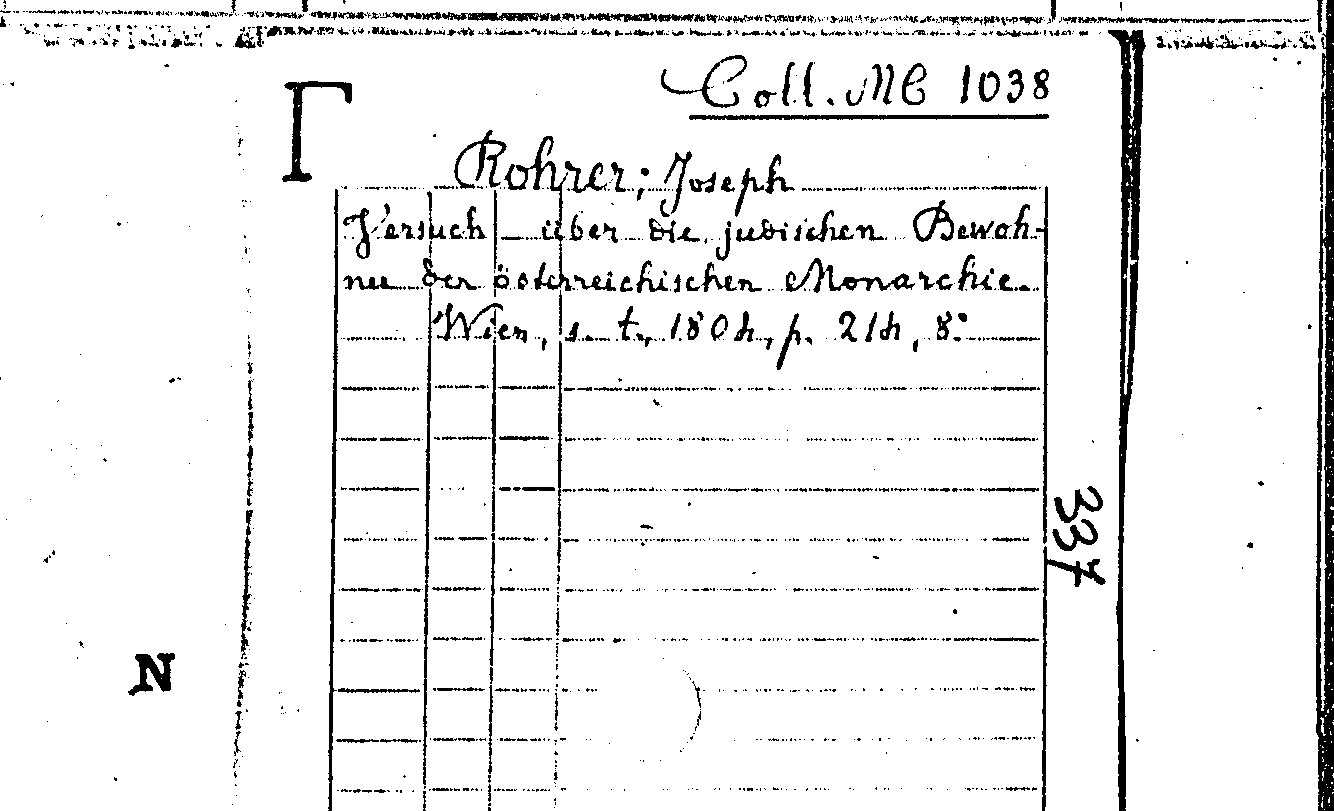 Coll. MC 1038
Rohrer, Joseph
Versuch über die judischen Bewoh-
ner der österreichischen Monarchie.
Wien, s. t., 1804, p. 214, 8°
337
N